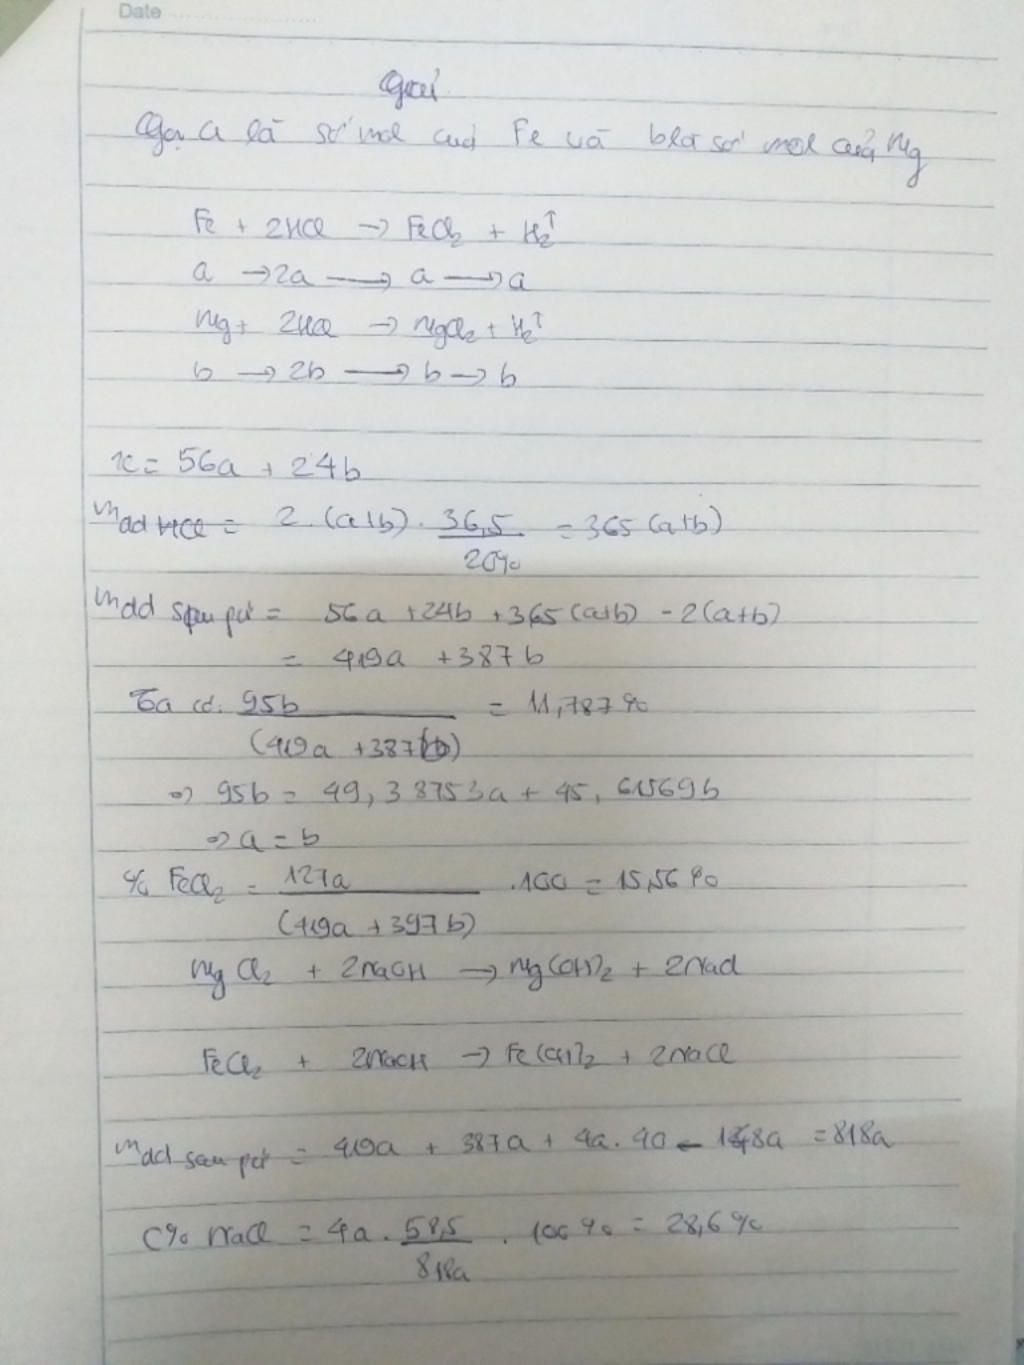 Date
Giải
Gọi a là số mol của Fe và b là số mol của Mg
Fe + 2HCl → FeCl₂ + H₂↑
a → 2a → a → a
Mg + 2HCl → MgCl₂ + H₂↑
b → 2b → b → b
x = 56a + 24b
mdd HCl = 2.(a+b).36,5/20% = 365(a+b)
mdd sau pứ = 56a + 24b + 365(a+b) - 2(a+b)
= 419a + 387b
Ta có: 95b/(419a + 387b) = 11,787%
⇒ 95b = 49,38753a + 45,61569b
⇒ a = b
% FeCl₂ = 127a/(419a + 397b) .100 = 15,56%
MgCl₂ + 2NaOH → Mg(OH)₂ + 2NaCl
FeCl₂ + 2NaOH → Fe(OH)₂ + 2NaCl
mdd sau pứ = 419a + 387a + 4a.40 - 148a = 818a
C% NaCl = 4a.58,5/818a . 100% = 28,6%